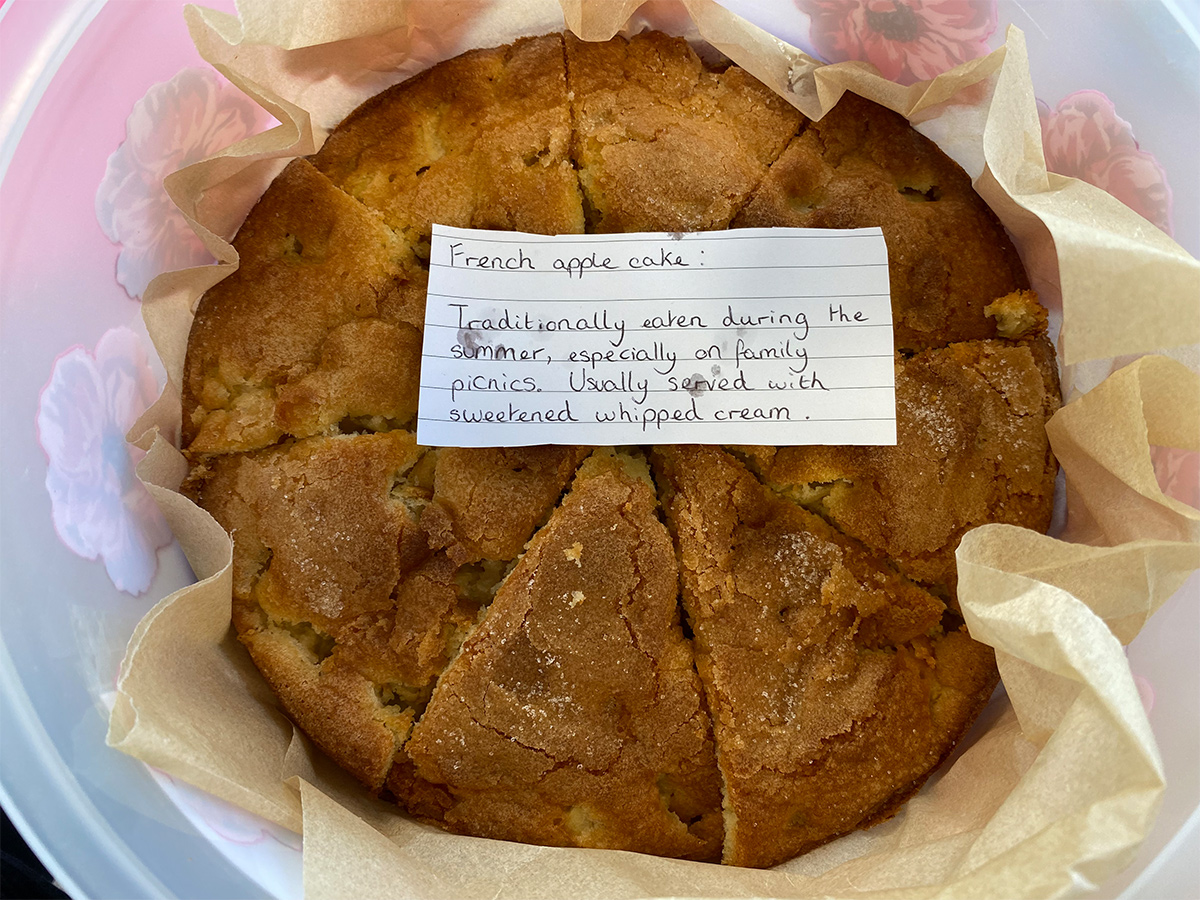 French apple cake:
Traditionally eaten during the
summer, especially on family
picnics. Usually served with
sweetened whipped cream.